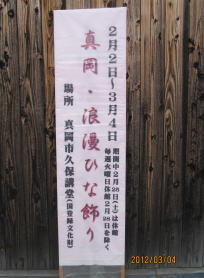 2月2日~3月4日
期間中2月25日(土)は休館
毎週火曜日休館2月28日を除く
真岡・浪漫ひな飾り
場所 真岡市久保講堂(国登録文化財)
2012/03/04